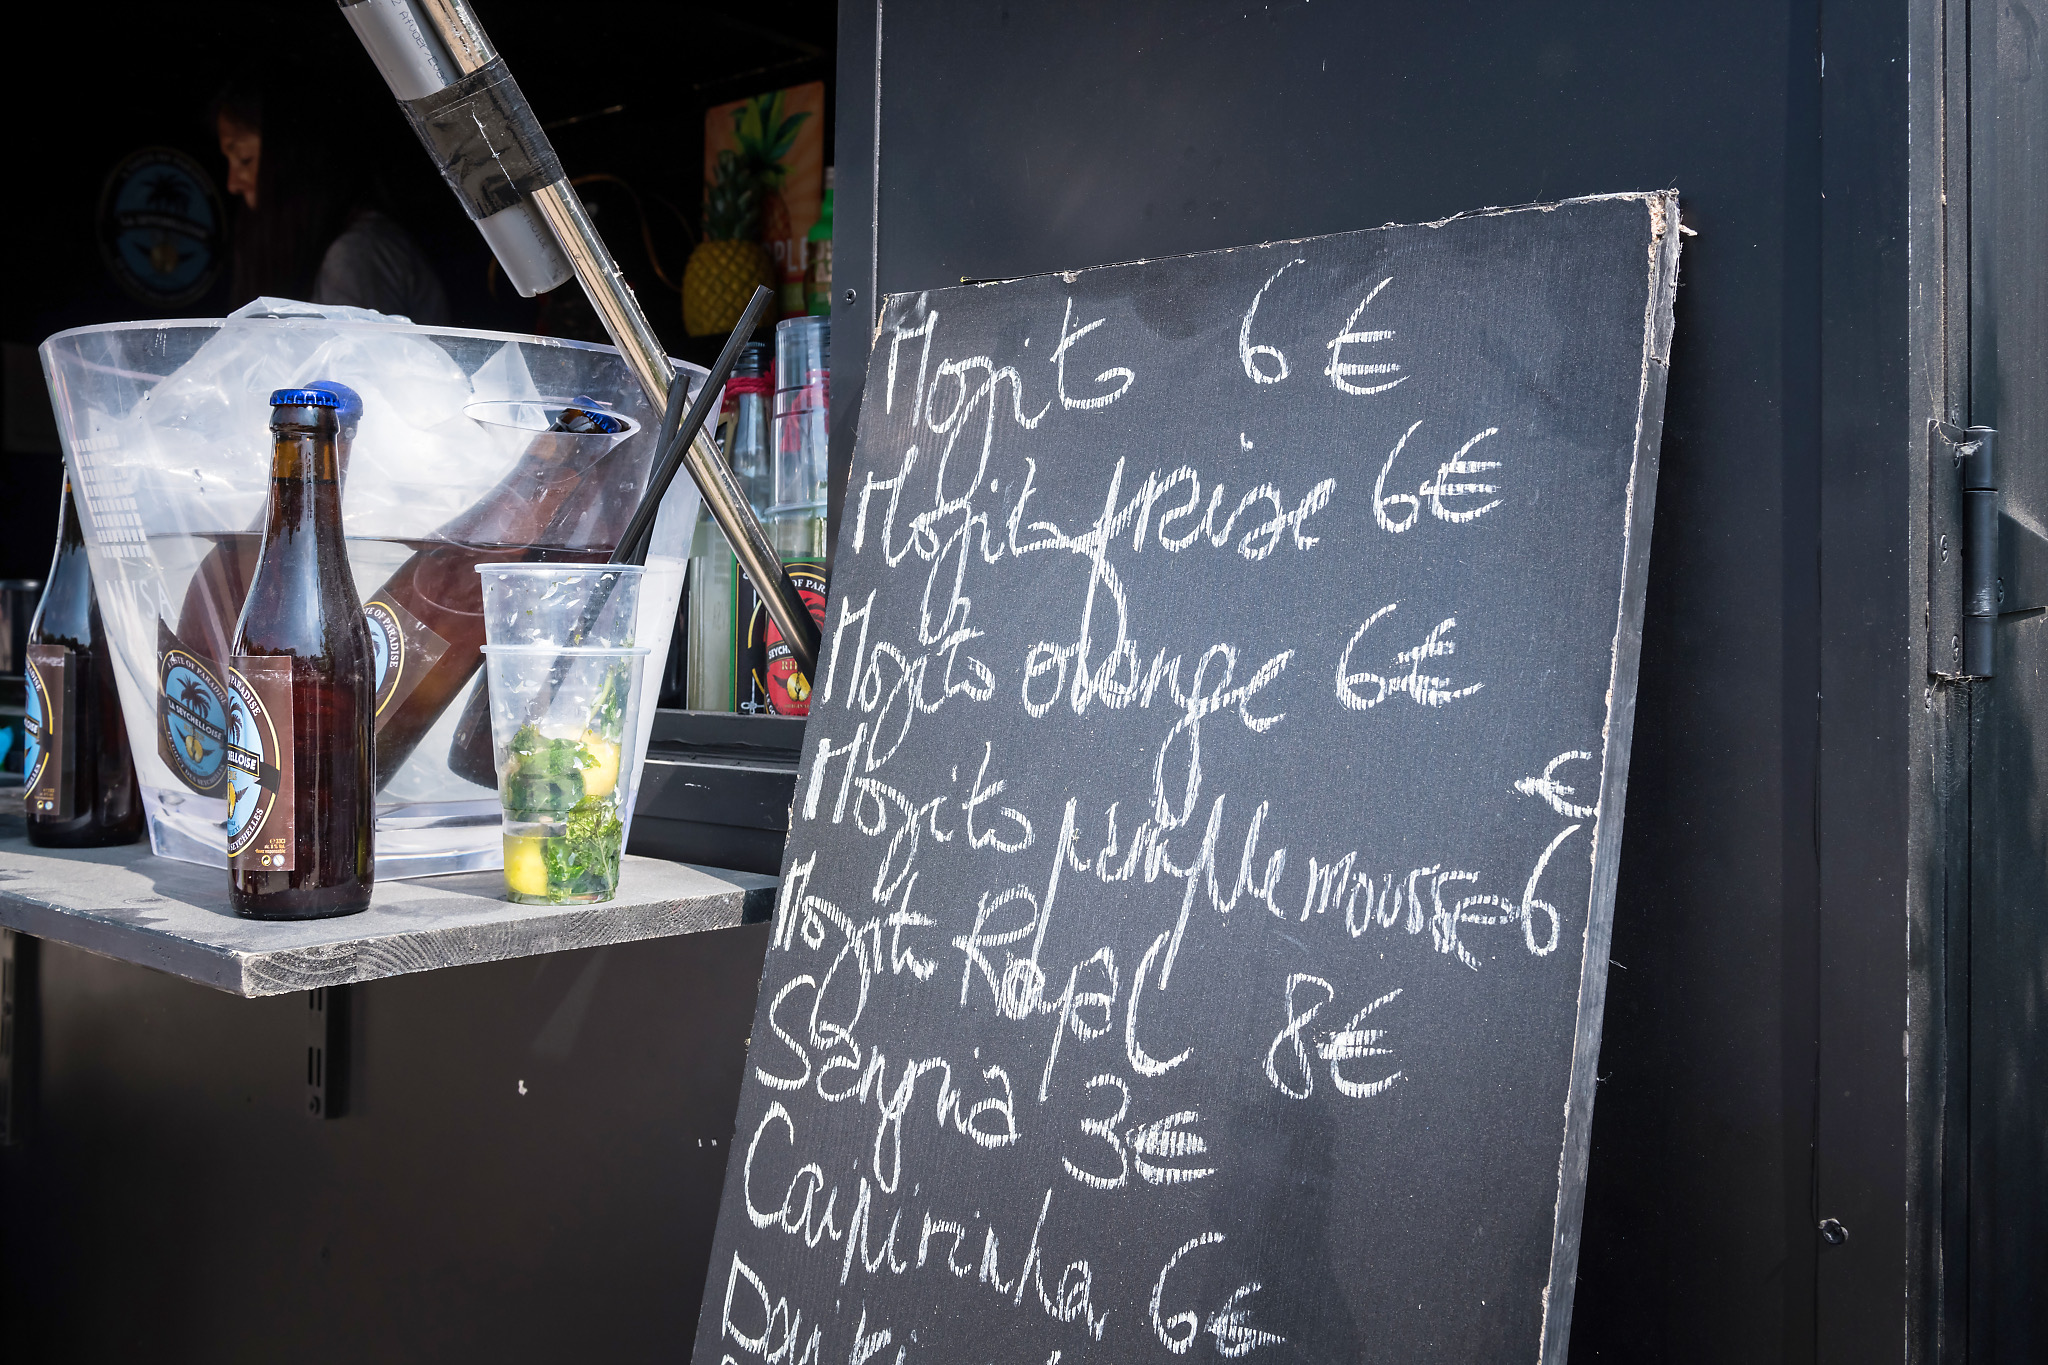 Mojito 6€
Mojito fraise 6€
Mojito orange 6€
Mojito pamplemousse 6€
Mojito Royal 8€
Sangria 3€
Caipirinha 6€
TASTE OF PARADISE
LA SEYCHELLOISE
OF PARADISE
SEYCHELLES
33Cl